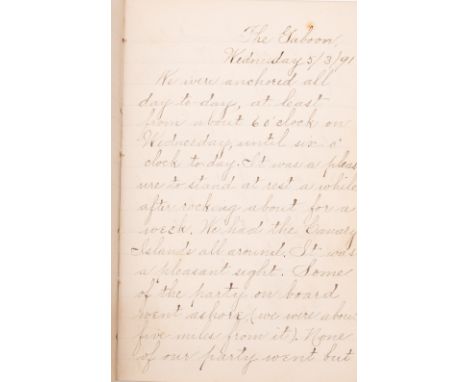 The Gaboon,
Wednesday 5/3/91
We were anchored all
day to-day, at least
from about 6 o'clock on
Wednesday, until six o'
clock to day. It was a pleas
ure to stand at rest a while
after rocking about for a
week. We had the Canary
Islands all around. It was
a pleasant sight. Some
of the party on board
went ashore, (we were about
five miles from it). None
of our party went but